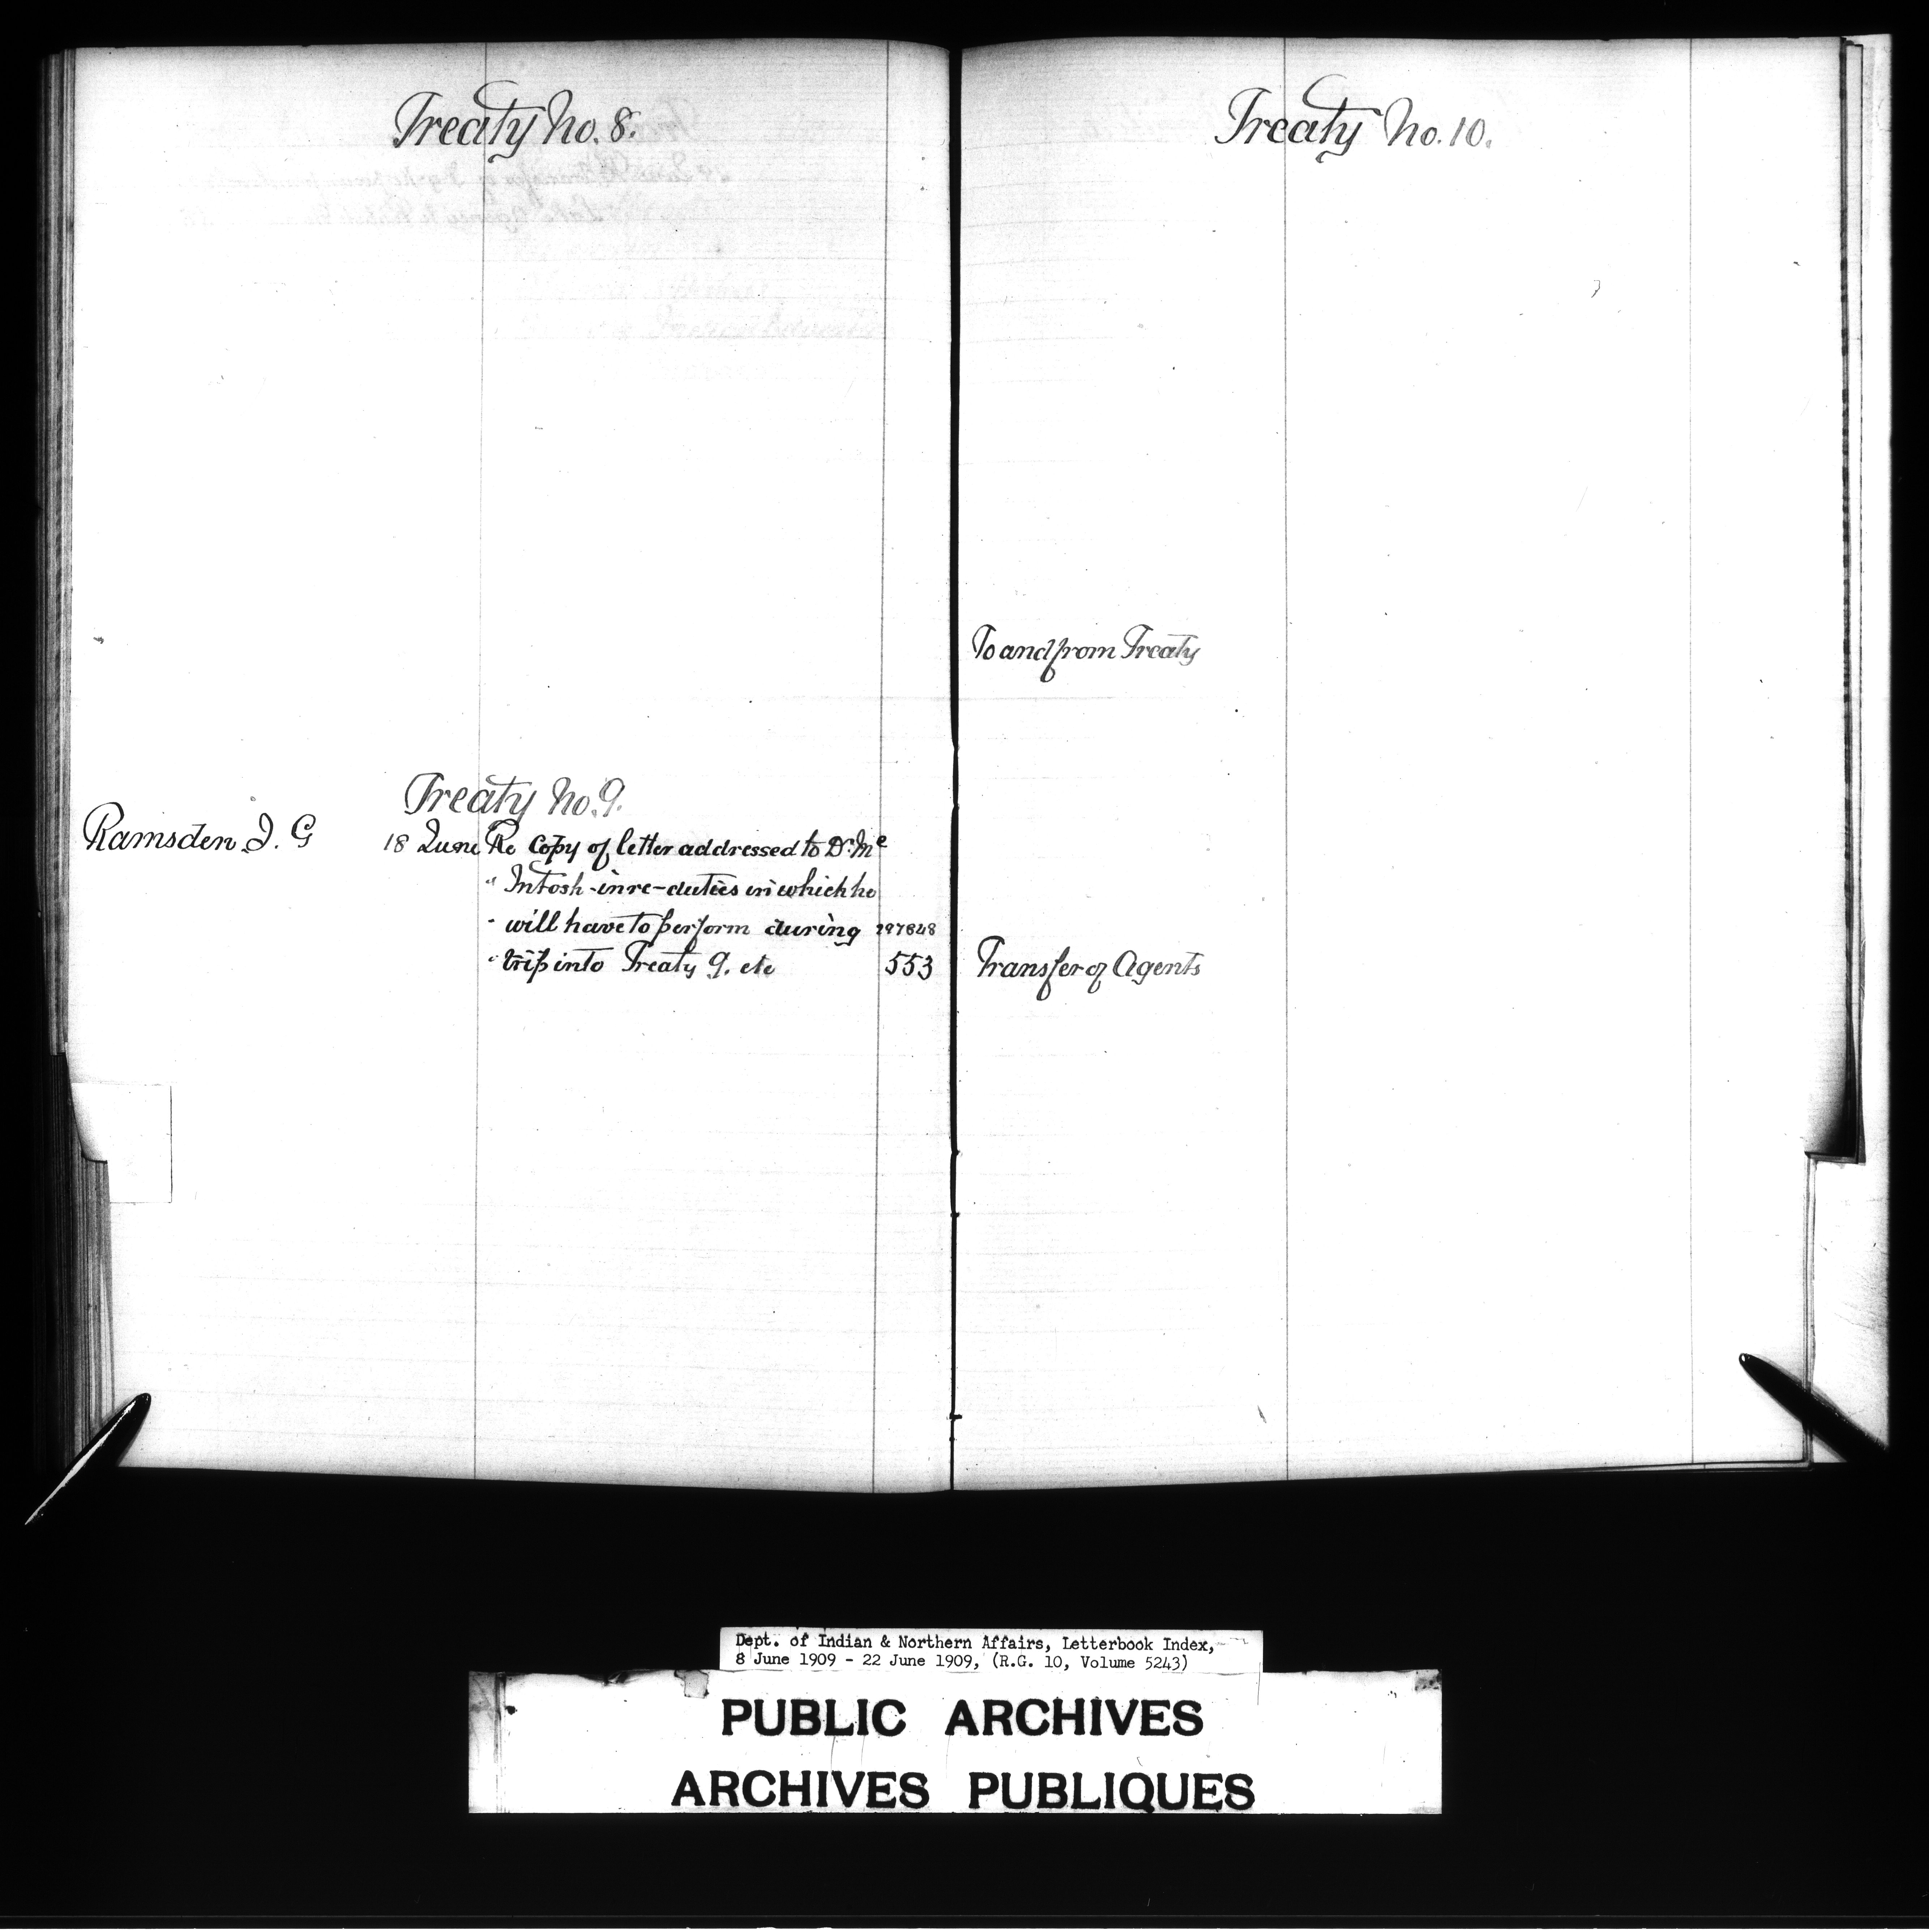 Treaty No. 8.
Treaty No. 9.
Ramsden J. G 18 June Re Copy of letter addressed to Dr. Mc
" Intosh - in re - duties in which he
" will have to perform during 297848
" trip into Treaty 9. etc 553
Treaty No. 10.
To and from Treaty
Transfer of Agents
Dept. of Indian & Northern Affairs, Letterbook Index,
8 June 1909 - 22 June 1909, (R.G. 10, Volume 5243)
PUBLIC ARCHIVES
ARCHIVES PUBLIQUES